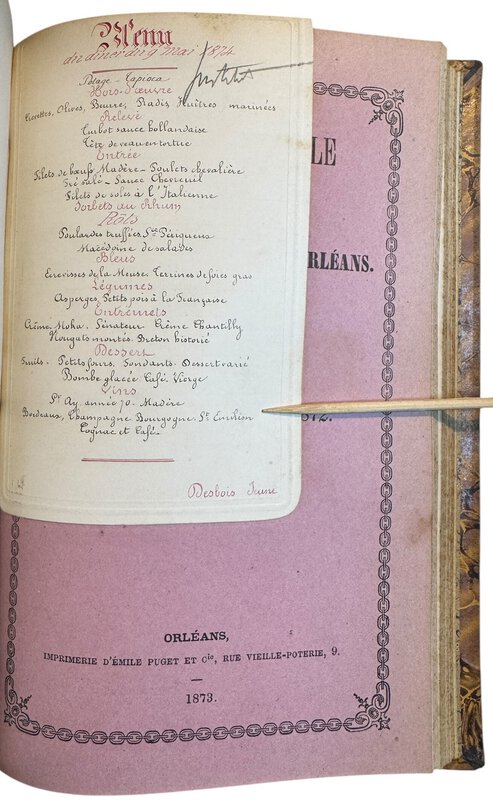 Menu
du dîner du 9 mai 1874
Potage - Tapioca
Hors-d'œuvre
Crevettes, Olives, Beurre, Radis Huîtres marinées
Relevé
Turbot sauce hollandaise
Tête de veau en tortue
Entrée
Filets de bœuf Madère - Poulets chevalière
Pré salé - Sauce Chevreuil
Filets de soles à l'Italienne
Sorbets au Rhum
Rôts
Poulardes truffées, Sce Périgueux
Macédoine de salades
Bleus
Ecrevisses de la Meuse. Terrines de foies gras
Légumes
Asperges, Petits pois à la Française
Entremets
Crème Moka. Sénateur Crème Chantilly
Nougats montés. Breton historié
Dessert
Fruits - Petits fours, Fondants - Dessert varié
Bombe glacée Café Vierge
Vins
Pt Ay année 70 - Madère
Bordeaux, Champagne Bourgogne, St Emilion
Cognac et Café.
Desbois Jeune
LE
RLÉANS.
ORLÉANS,
IMPRIMERIE D'ÉMILE PUGET ET Cie, RUE VIEILLE-POTERIE, 9.
1873.